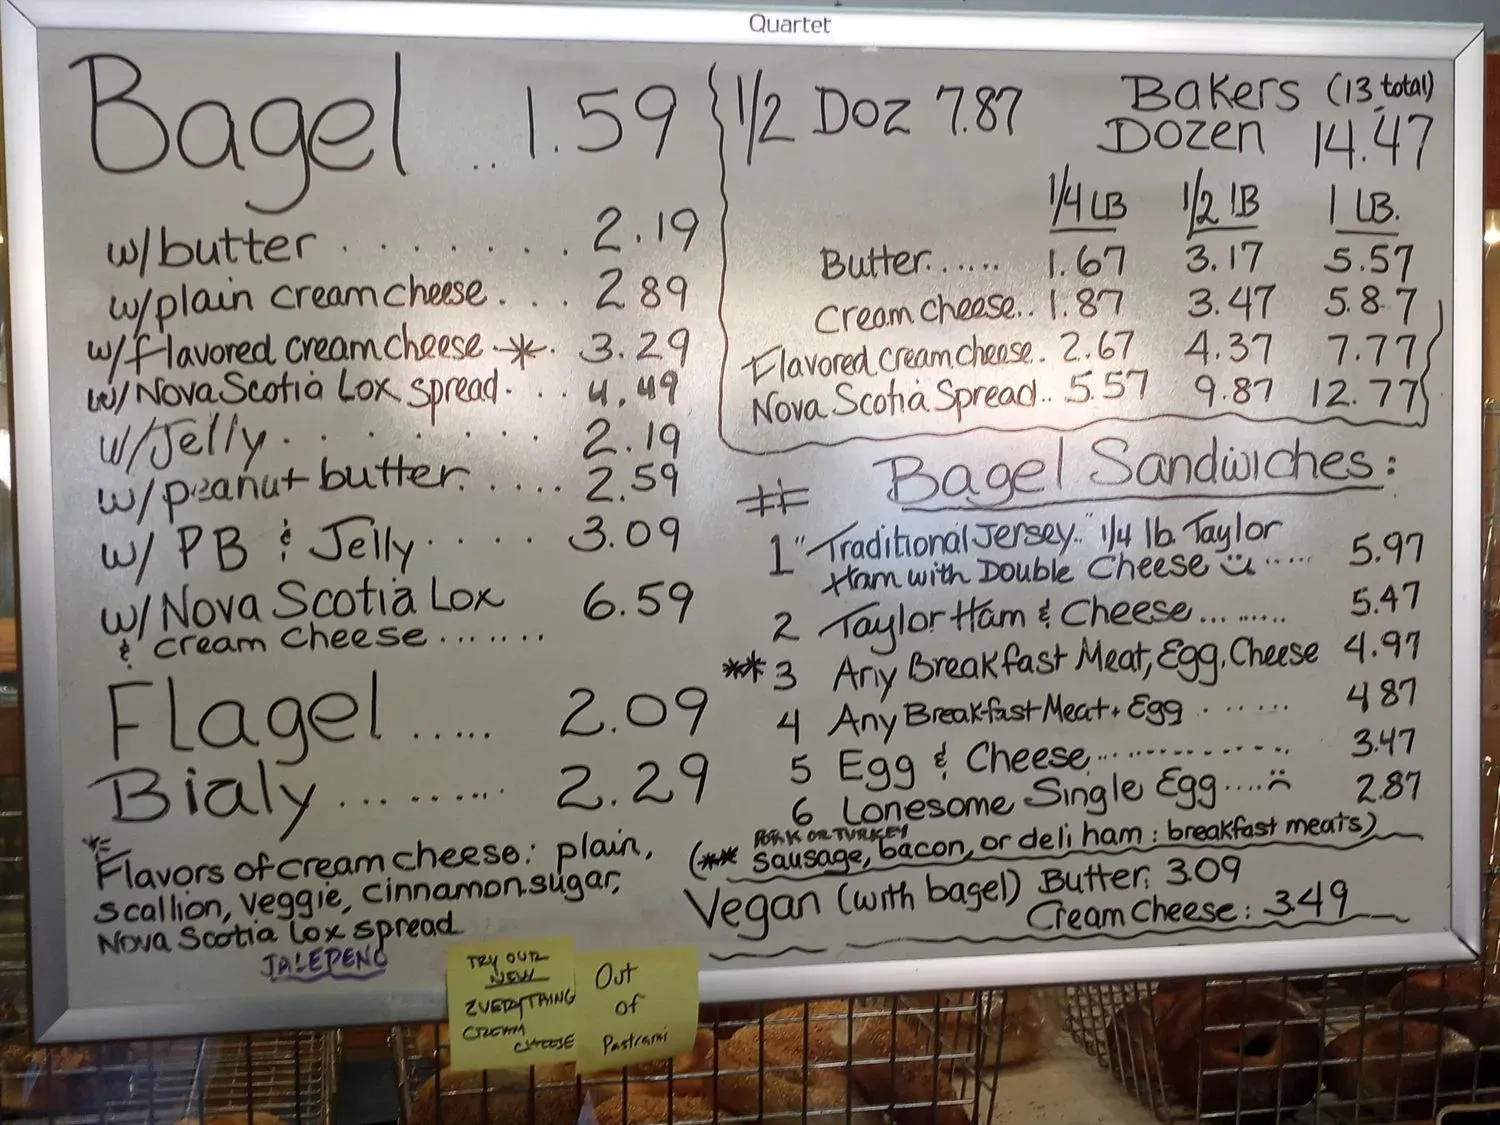 Quartet
Bagel .. 1.59
w/butter . . . . . . . . 2.19
w/plain cream cheese . . . 2 89
w/flavored cream cheese * . 3.29
w/Nova Scotia Lox spread . . . 4.49
w/Jelly . . . . . . . . 2.19
w/peanut butter. . . . . . 2.59
w/ PB & Jelly . . . . . 3.09
w/Nova Scotia Lox 6.59
& cream cheese .......
Flagel ..... 2.09
Bialy .......... 2.29
* Flavors of cream cheese: plain,
scallion, veggie, cinnamon sugar,
Nova Scotia lox spread
JALEPENO
1/2 Doz 7.87
Bakers (13 total)
Dozen 14.47
1/4 LB 1/2 lB 1 LB.
Butter...... 1.67 3.17 5.57
Cream cheese.. 1.87 3.47 5.87
Flavored cream cheese.. 2.67 4.37 7.77
Nova Scotia Spread.. 5.57 9.87 12.77
# Bagel Sandwiches:
1 "Traditional Jersey.." 1/4 lb. Taylor
Ham with Double Cheese ..... 5.97
2 Taylor Ham & Cheese ......... 5.47
** 3 Any Breakfast Meat, Egg, Cheese 4.97
4 Any Breakfast Meat + Egg ...... 4 87
5 Egg & Cheese .............. 3.47
6 Lonesome Single Egg ..... 2.87
PORK OR TURKEY
(** Sausage, bacon, or deli ham : breakfast meats)
Vegan (with bagel) Butter: 3.09
Cream Cheese: 3.49
TRY OUR
NEW
EVERYTHING
CREAM
CHEESE
Out
of
Pastrami